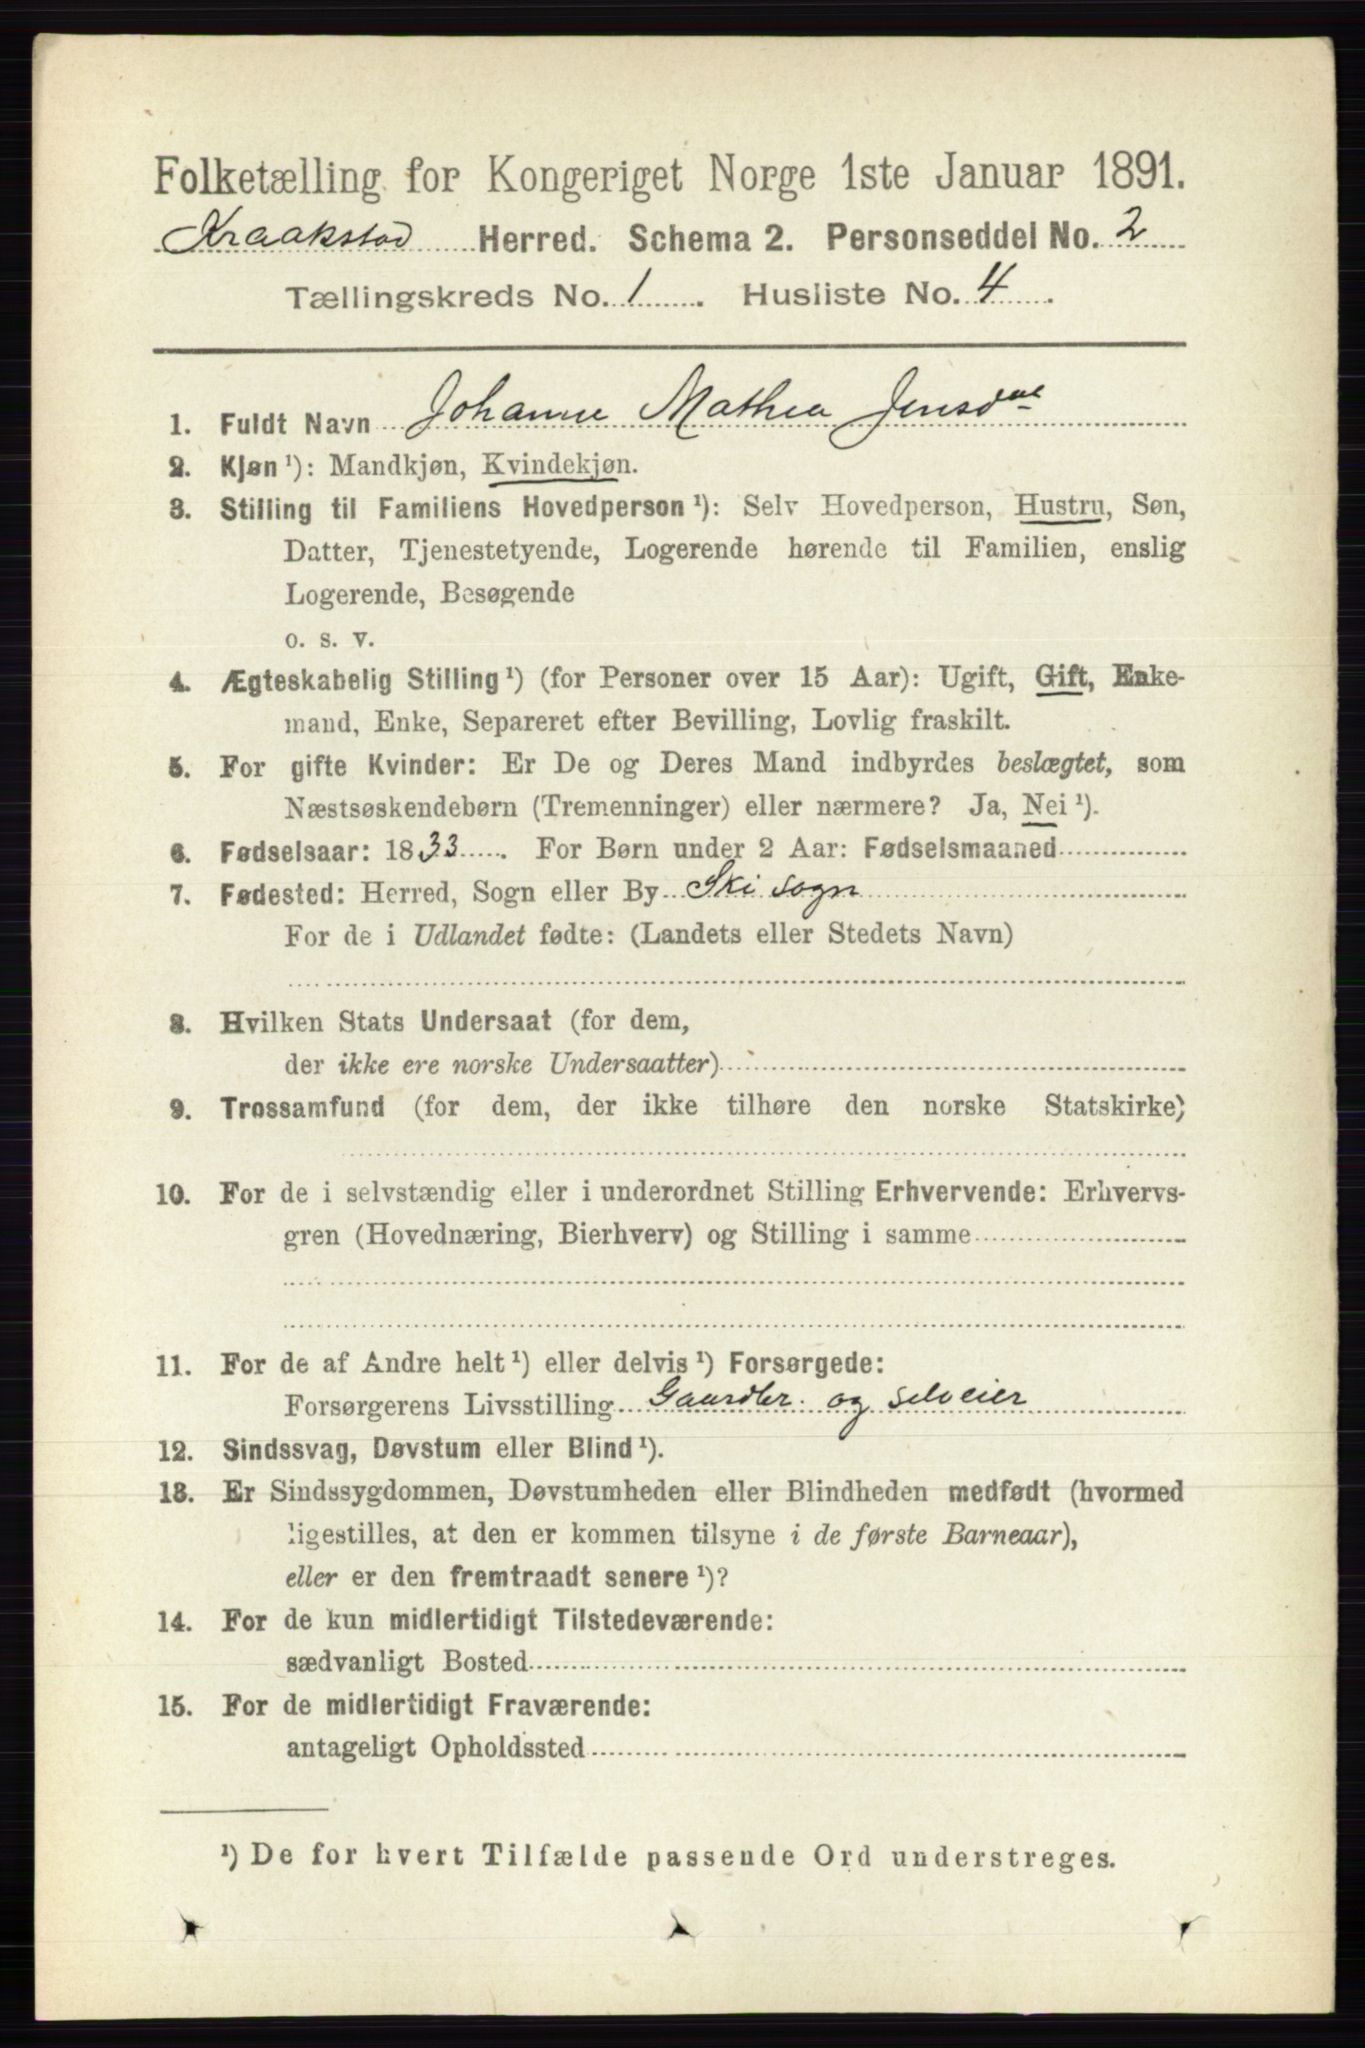 Folketælling for Kongeriget Norge 1ste Januar 1891.
Kraakstad Herred. Schema 2. Personseddel No. 2
Tællingskreds No. 1. Husliste No. 4.
1. Fuldt Navn Johanne Mathea Jensdat
2. Kjøn ¹): Mandkjøn, Kvindekjøn.
3. Stilling til Familiens Hovedperson ¹): Selv Hovedperson, Hustru, Søn,
Datter, Tjenestetyende, Logerende hørende til Familien, enslig
Logerende, Besøgende
o. s. v.
4. Ægteskabelig Stilling ¹) (for Personer over 15 Aar): Ugift, Gift, Enke-
mand, Enke, Separeret efter Bevilling, Lovlig fraskilt.
5. For gifte Kvinder: Er De og Deres Mand indbyrdes beslægtet, som
Næstsøskendebørn (Tremenninger) eller nærmere? Ja, Nei ¹).
6. Fødselsaar: 1833. For Børn under 2 Aar: Fødselsmaaned
7. Fødested: Herred, Sogn eller By Ski sogn
For de i Udlandet fødte: (Landets eller Stedets Navn)
8. Hvilken Stats Undersaat (for dem,
der ikke ere norske Undersaatter)
9. Trossamfund (for dem, der ikke tilhøre den norske Statskirke)
10. For de i selvstændig eller i underordnet Stilling Erhvervende: Erhvervs-
gren (Hovednæring, Bierhverv) og Stilling i samme
11. For de af Andre helt ¹) eller delvis ¹) Forsørgede:
Forsørgerens Livsstilling Gaardbr. og selveier
12. Sindssvag, Døvstum eller Blind ¹).
13. Er Sindssygdommen, Døvstumheden eller Blindheden medfødt (hvormed
ligestilles, at den er kommen tilsyne i de første Barneaar),
eller er den fremtraadt senere ¹)?
14. For de kun midlertidigt Tilstedeværende:
sædvanligt Bosted
15. For de midlertidigt Fraværende:
antageligt Opholdssted
¹) De for hvert Tilfælde passende Ord understreges.